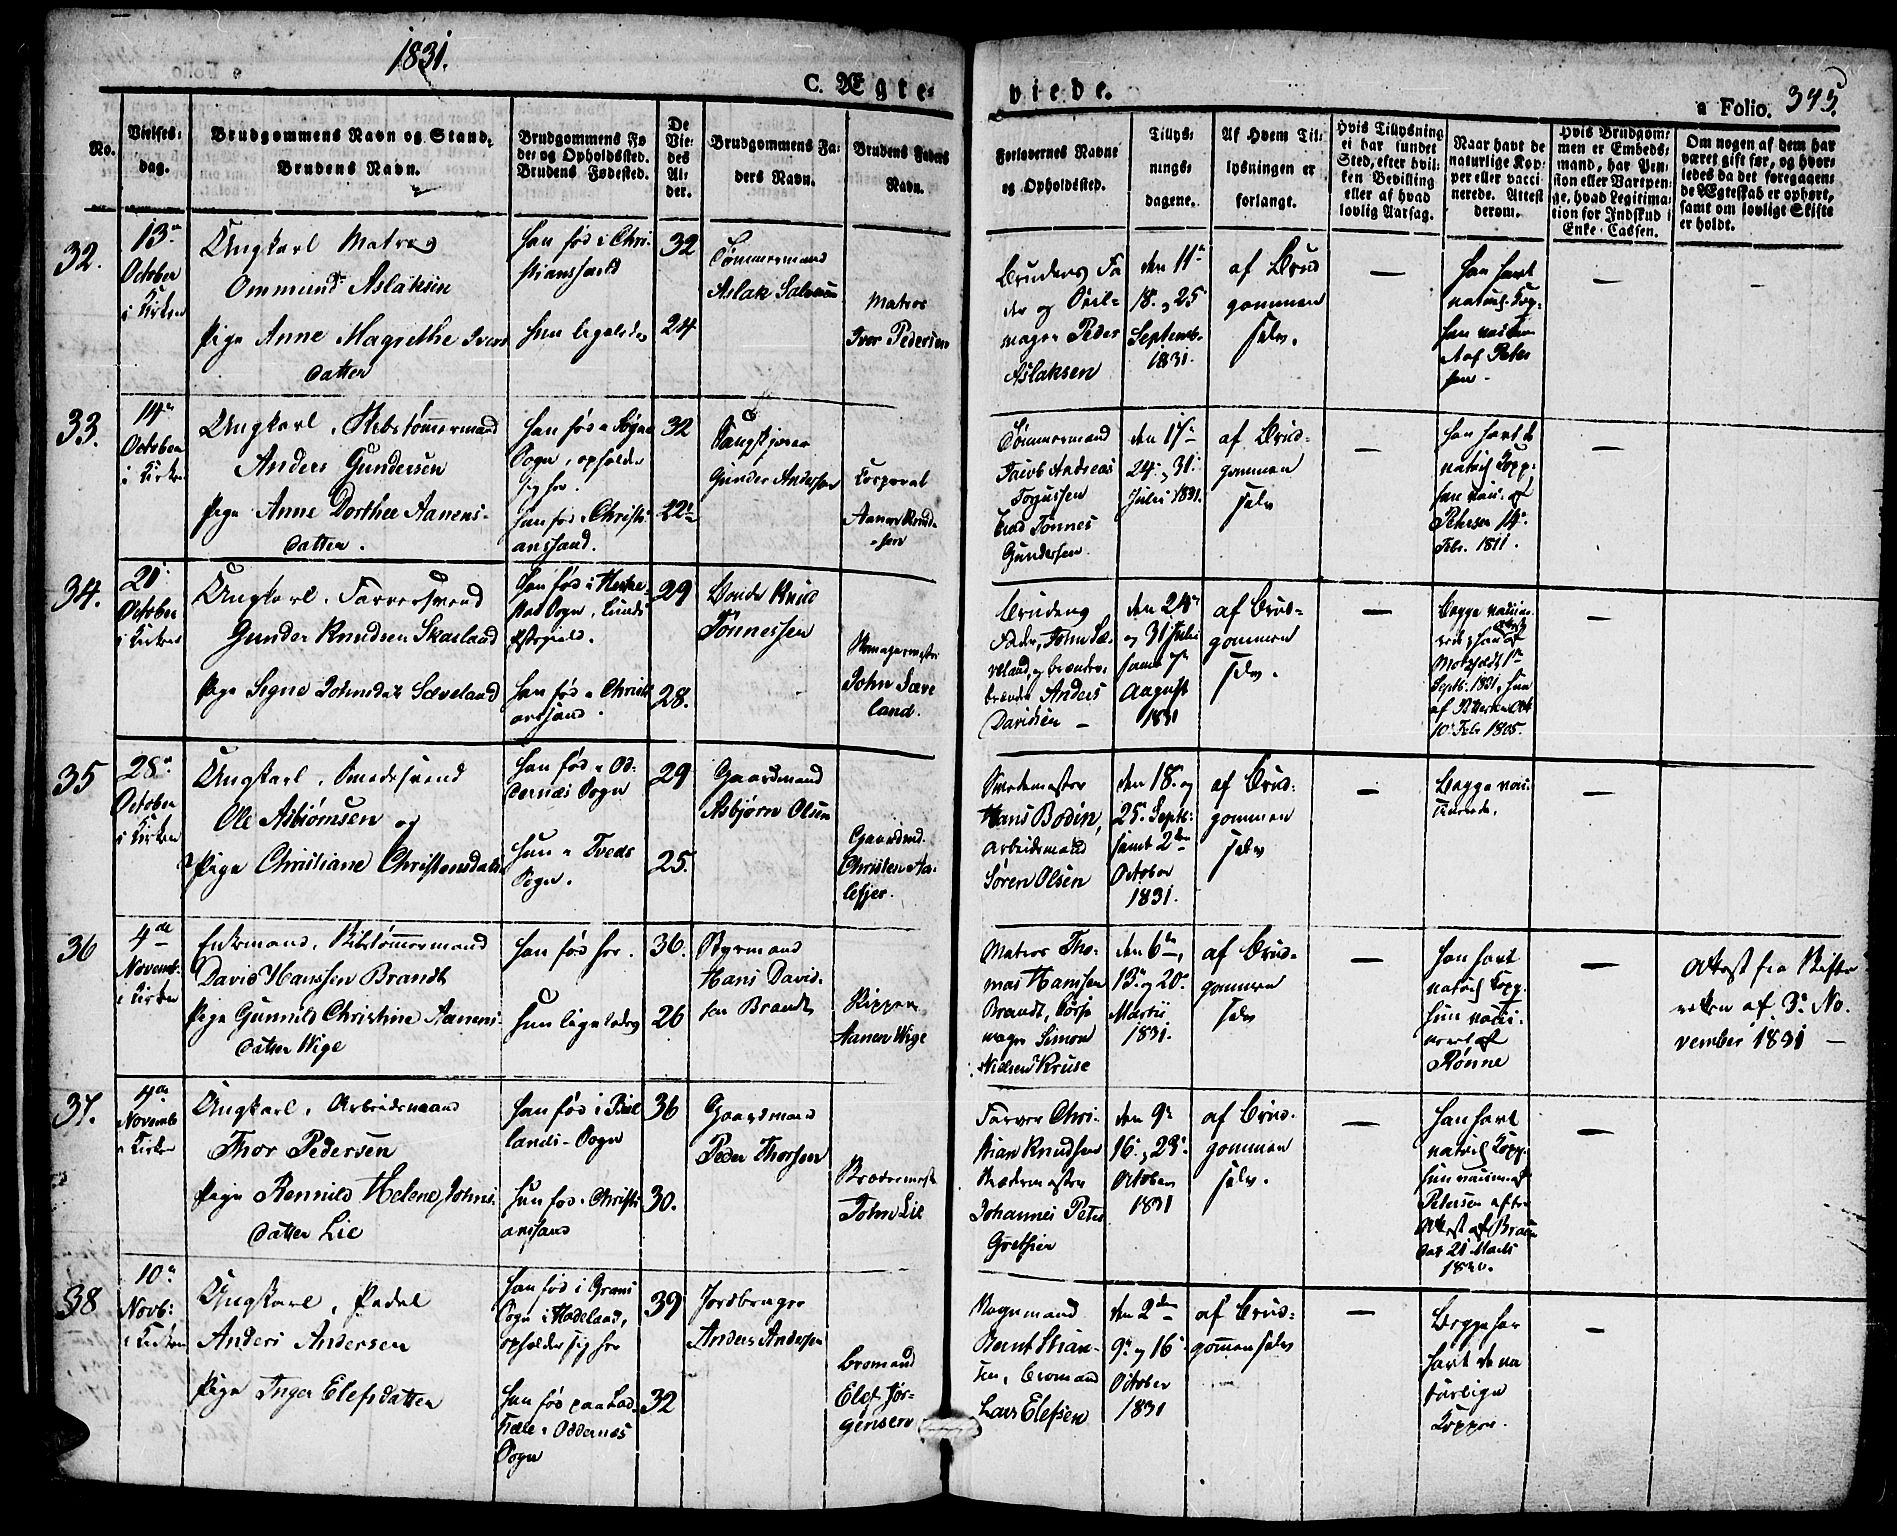 1831.
C. Ægte-
viede.
a Folio. 345
No.
Vielses-
dag.
Brudgommens Navn og Stand.
Brudens Navn.
Brudgommens Fø
de- og Opholdssted.
Brudens Fødested.
De
Vie-
des
Al-
der.
Brudgommens Fa-
ders Navn.
Brudens Faders
Navn.
Forlovernes Navne
og Opholdssted.
Tillys-
nings-
dagene.
Af Hvem Til-
lysningen er
forlangt.
Hvis Tillysning
ei har fundet
Sted, efter hvil-
ken Bevilling
eller af hvad
lovlig Aarsag.
Naar havt de
naturlige Kop-
per eller vacci-
nerede. Attest
derom.
Hvis Brudgom-
men er Embeds-
mand, har Pen-
sion eller Vartpen-
ge, hvad Legitima-
tion for Indskud i
Enke-Cassen.
Om nogen af dem har
været gift før, og hvor-
ledes da det foregaaen-
de Ægteskab er ophørt,
samt om lovligt Skifte
er holdt.
32.
13de
October
i Kirken
Ungkarl Matros
Ommund Aslaksen
Pige Anne Magrethe Ivers
datter
han fød i Chri-
stianssand
hun ligeledes
32
24
Tømmermand
Aslak Salvesen
Matros
Iver Pedersen
Brudens Fa
der og
mager Peder
Aslaksen
den 11te
18. og 25
Septemb.
1831.
af Brud
gommen
selv.
—
han havt
naturl. Kop.
hun vaccin
af Peter
sen.
—
—
33.
14de
October
i Kirken
Ungkarl, Skibstømmermand
Anders Gundersen
Pige Anne Dorthea Aanens-
datter.
han fød i Søgne
Sogn, opholder
sig her.
hun fød i Christi
anssand.
32
22
Gunder Andersen
Corporal
Aanen Knud-
sen
Tømmermand
Jacob Andreas
Torjussen
Tønnes
Gundersen
den 17de
24. og 31.
Julii 1831.
af Brud-
gommen
selv
—
han havt de
naturl. Kopp.
hun vacc. af
Petersen 14.
Febr. 1811.
—
34.
21.
October
i Kirken
Ungkarl, Farversvend
Gunder Knudsen Skaeland
Pige Segne Johnsdat. Sæveland
han fød i Heske-
stad Sogn, Lunds
Præstegield.
hun fød i Christi
anssand.
29
28.
Knud
Tønnessen
John Sæve
land.
Brudens
Fader, John Sæ-
veland, og
Anders
Davidsen —
den 24de
og 31 Julii
samt 7de
August
1831
af Brud-
gommen
selv.
—
Begge vaccine-
rede, han af
1ste
Septb. 1831, hun
af
10. Febr 1805.
—
35
28de
October
i Kirken
Ungkarl, Smedesvend
Ole Asbiørnsen og
Pige Christiane Christensdatter
han fød i Od-
dernes Sogn
hun i Tveds
Sogn.
29
25.
Gaardmand
Asbjørn Olsen
Gaardmd.
Christen Aa-
lefjer.
Smedemester
Hans Bodin,
Arbeidsmand
Søren Olsen
den 18. og
25. Septb:
samt 2den
October
1831.
af Brud-
gommen
selv
—
Begge vacci-
nerede.
—
36
4de
Novemb.
i Kirken
Enkemand, Skibstømmermand
David Hanssen Brandt
Pige Gunnild Christine Aanens-
datter Wige
han fød her.
hun ligeledes
36.
26
Styrmand
Hans David-
sen Brandt
Skipper
Aanen Wige
Matros Tho-
mas Hanssen
Brandt,
mager Simon
Nielsen Kruse
den 6te,
13de og 20de
Martii
1831.
af Brud-
gommen
selv
—
han havt
naturl. Kopp.
hun vacci-
neret af
Rønne
—
Attest fra Skifte
retten af 3de No-
vember 1831 —
37.
4de
Novemb
i Kirken
Ungkarl, Arbeidsmand
Thor Pedersen
Pige Rennild Helene Johns-
datter Lie
han fød i Biel
lands-Sogn
hun fød i Christi
anssand
36
30.
Gaardmand
Peder Thorsen
John Lie
Farver Chri-
stian Knudsen
Johannes Peter
den 9de
16. og 23.
October
1831
af Brud-
gommen
selv.
—
han havt
naturl. Kopp.
hun vaccin. af
Petersen efter
Attest af
dat 21 Marts
—
38
10de
Novb:
i Kirken
Ungkarl,
Anders Andersen
Pige Inger Elefsdatter
han fød i Grans
Sogn i Hadeland,
opholder sig her
hun fød paa
i Oddernes
Sogn
39
32
Jordbruger
Anders Andersen
Bromand
Elef Jør-
gensen
Vognmand
Bernt Stian-
sen, Bromand
Lars Elefsen
den 2den
9de og 16
October
1831
af Brud-
gommen selv
—
Begge har
havt de na
turlige
Kopper.
—